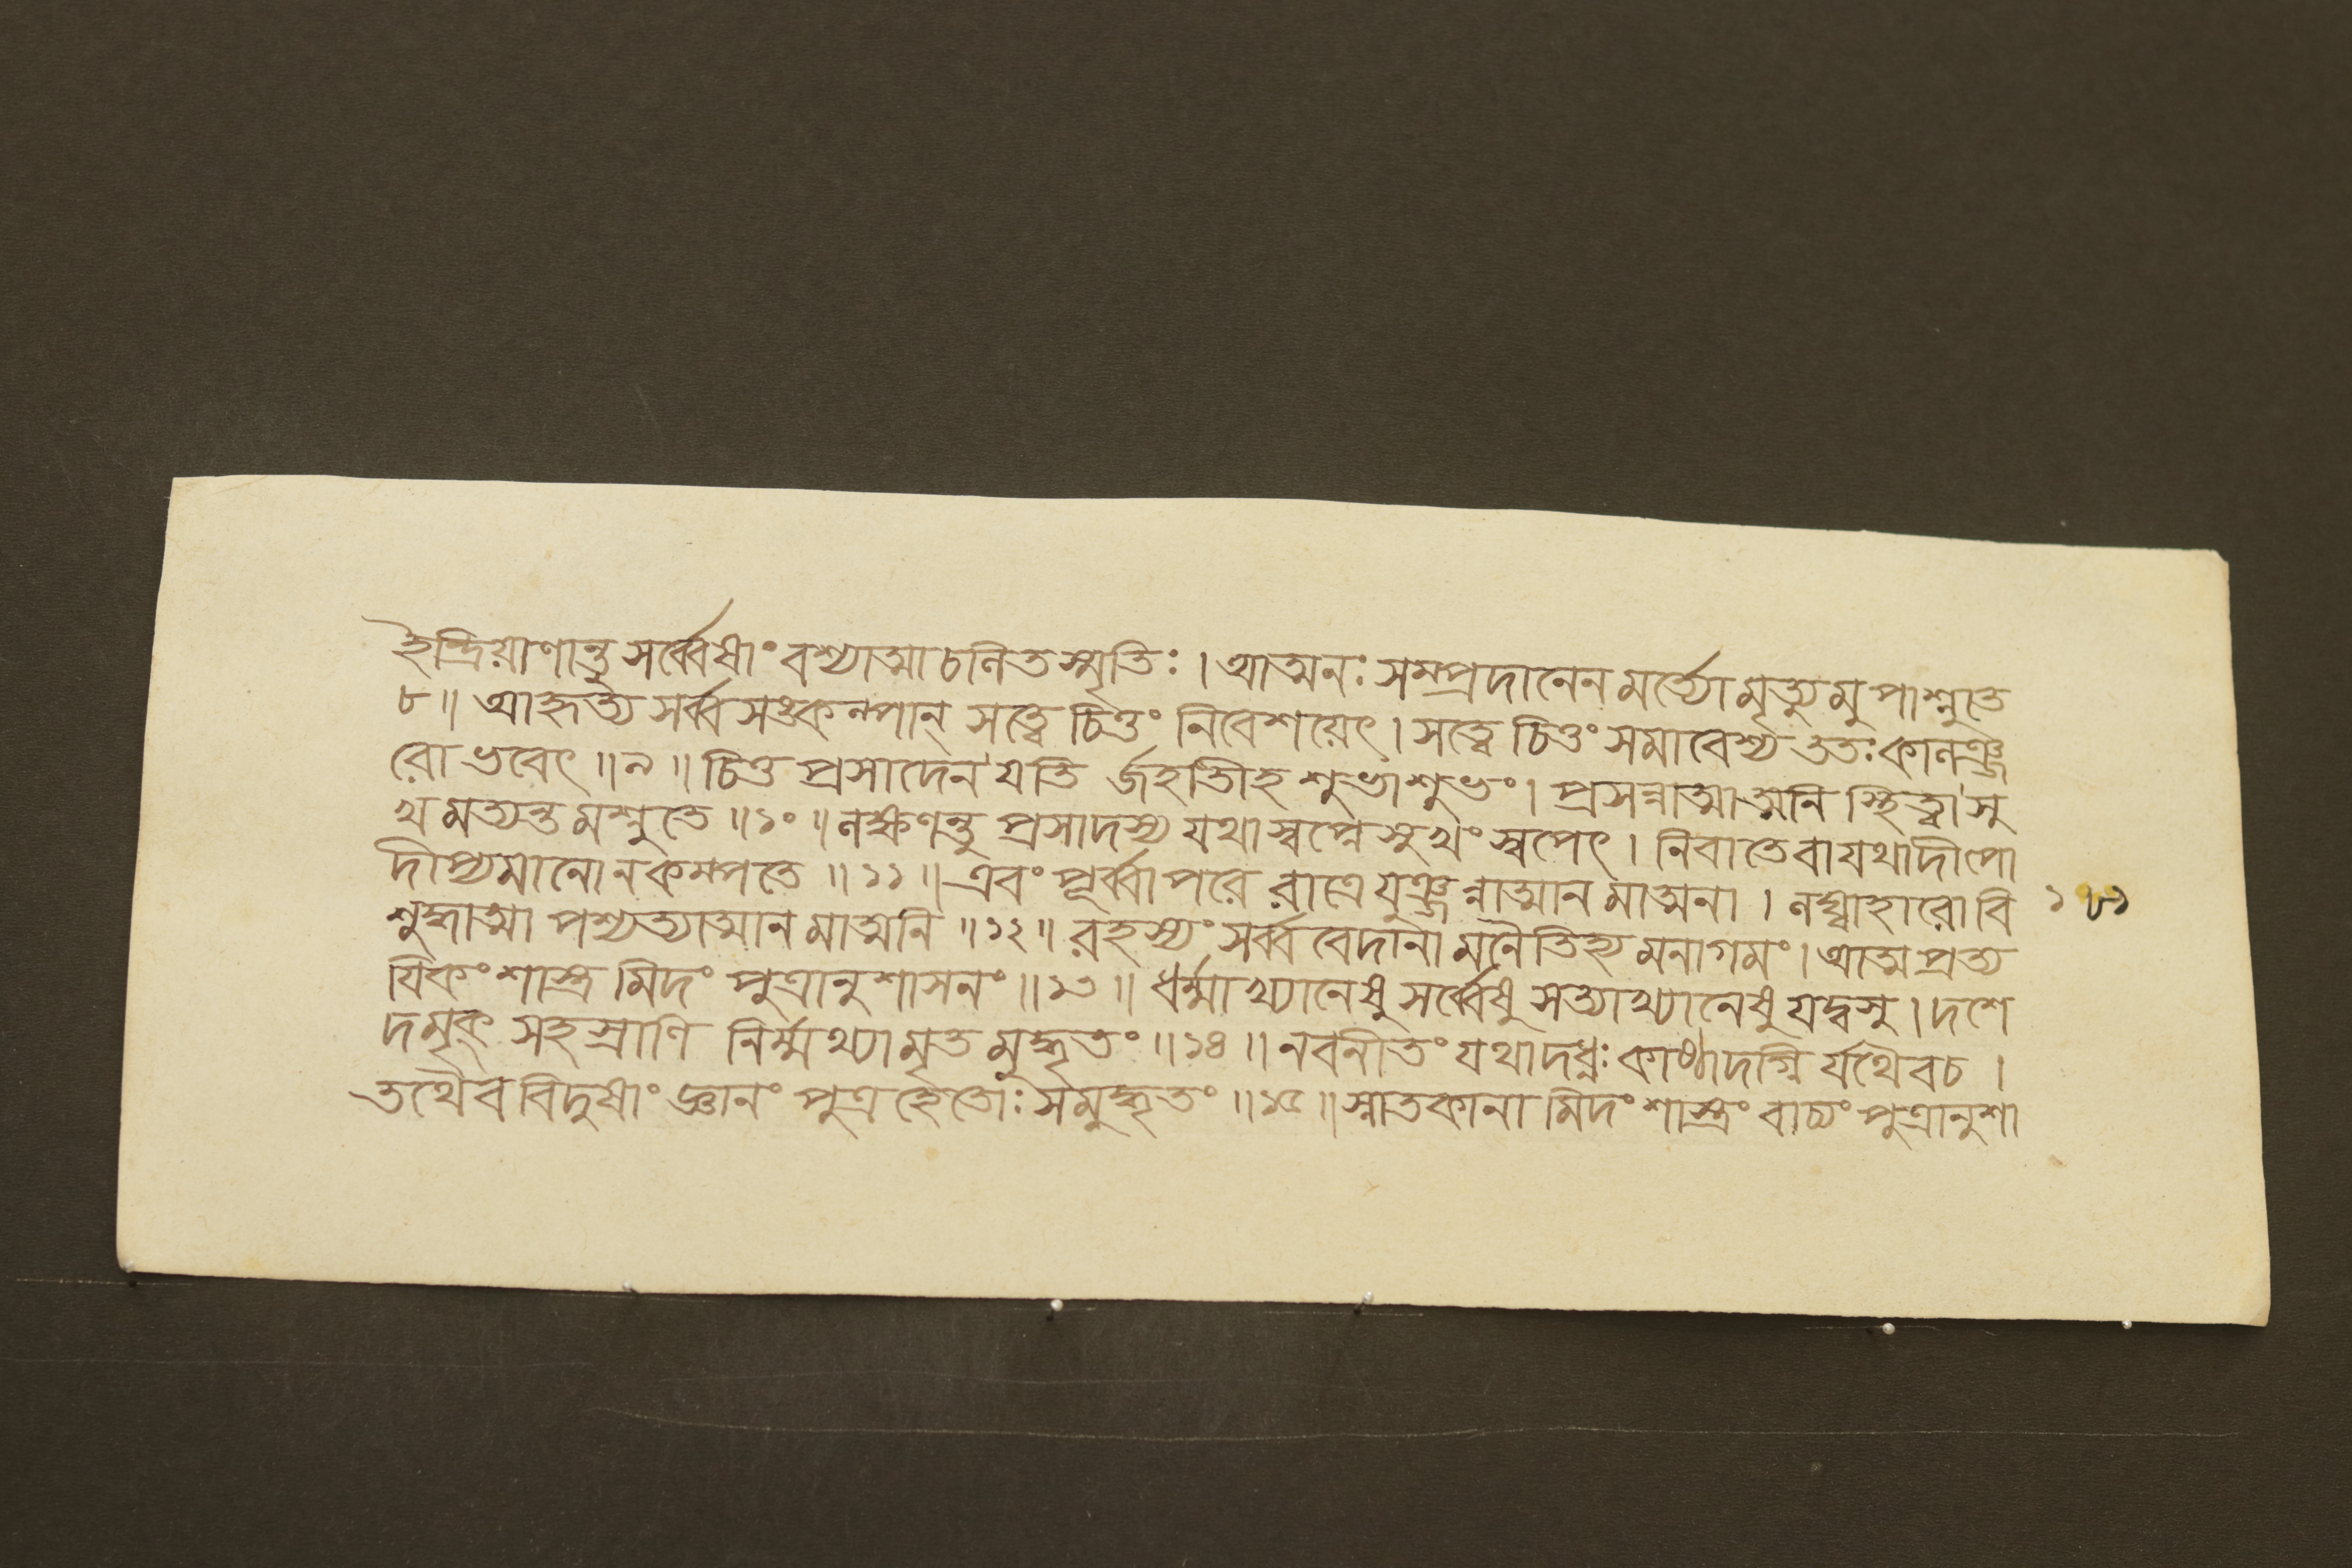 ইন্দ্রিয়াণান্তু সর্ব্বেষাং বশ্যাত্মা চনিত স্মৃতিঃ । আত্মনঃ সম্প্রদানেন মর্ত্ত্যো মৃত্যু মুপাশ্নুতে
৮ ॥ আহৃত্য সর্ব্ব সঙ্কল্পান্ সত্ত্বে চিত্তং নিবেশয়েৎ । সত্ত্বে চিত্তং সমাবেশ্য ততঃ কালঞ্জ
রো ভবেৎ ॥ ৯ ॥ চিত্ত প্রসাদেন যতি র্জহতীহ শুভাশুভং । প্রসন্নাত্মাত্মনি স্থিত্বা সু
খ মত্যন্ত মশ্নুতে ॥ ১০ ॥ লক্ষণন্তু প্রসাদস্য যথা স্বপ্নে সুখং স্বপেৎ । নিবাতে বা যথা দীপো
দীপ্যমানো ন কম্পতে ॥ ১১ ॥ এবং পূর্ব্বাপরে রাত্রে যুঞ্জন্নাত্মান মাত্মনা । লঘ্বাহারো বি
শুদ্ধাত্মা পশ্যত্যাত্মান মাত্মনি ॥ ১২ ॥ রহস্যং সর্ব্ব বেদানা মনৈতিহ্য মনাগমং । আত্ম প্রত্য
যিকং শাস্ত্র মিদং পুত্রানুশাসনং ॥ ১৩ ॥ ধর্ম্মাখ্যানেষু সর্ব্বেষু সত্যাখ্যানেষু যদ্বসু । দশে
দমৃক্ সহস্রাণি নির্ম্মথ্যামৃত মুদ্ধৃতং ॥ ১৪ ॥ নবনীতং যথা দধ্নঃ কাষ্ঠাদগ্নি র্যথৈব চ ।
তথৈব বিদুষাং জ্ঞানং পুত্র হেতোঃ সমুদ্ধৃতং ॥ ১৫ ॥ স্নাতকানা মিদং শাস্ত্রং বাচ্যং পুত্রানুশা